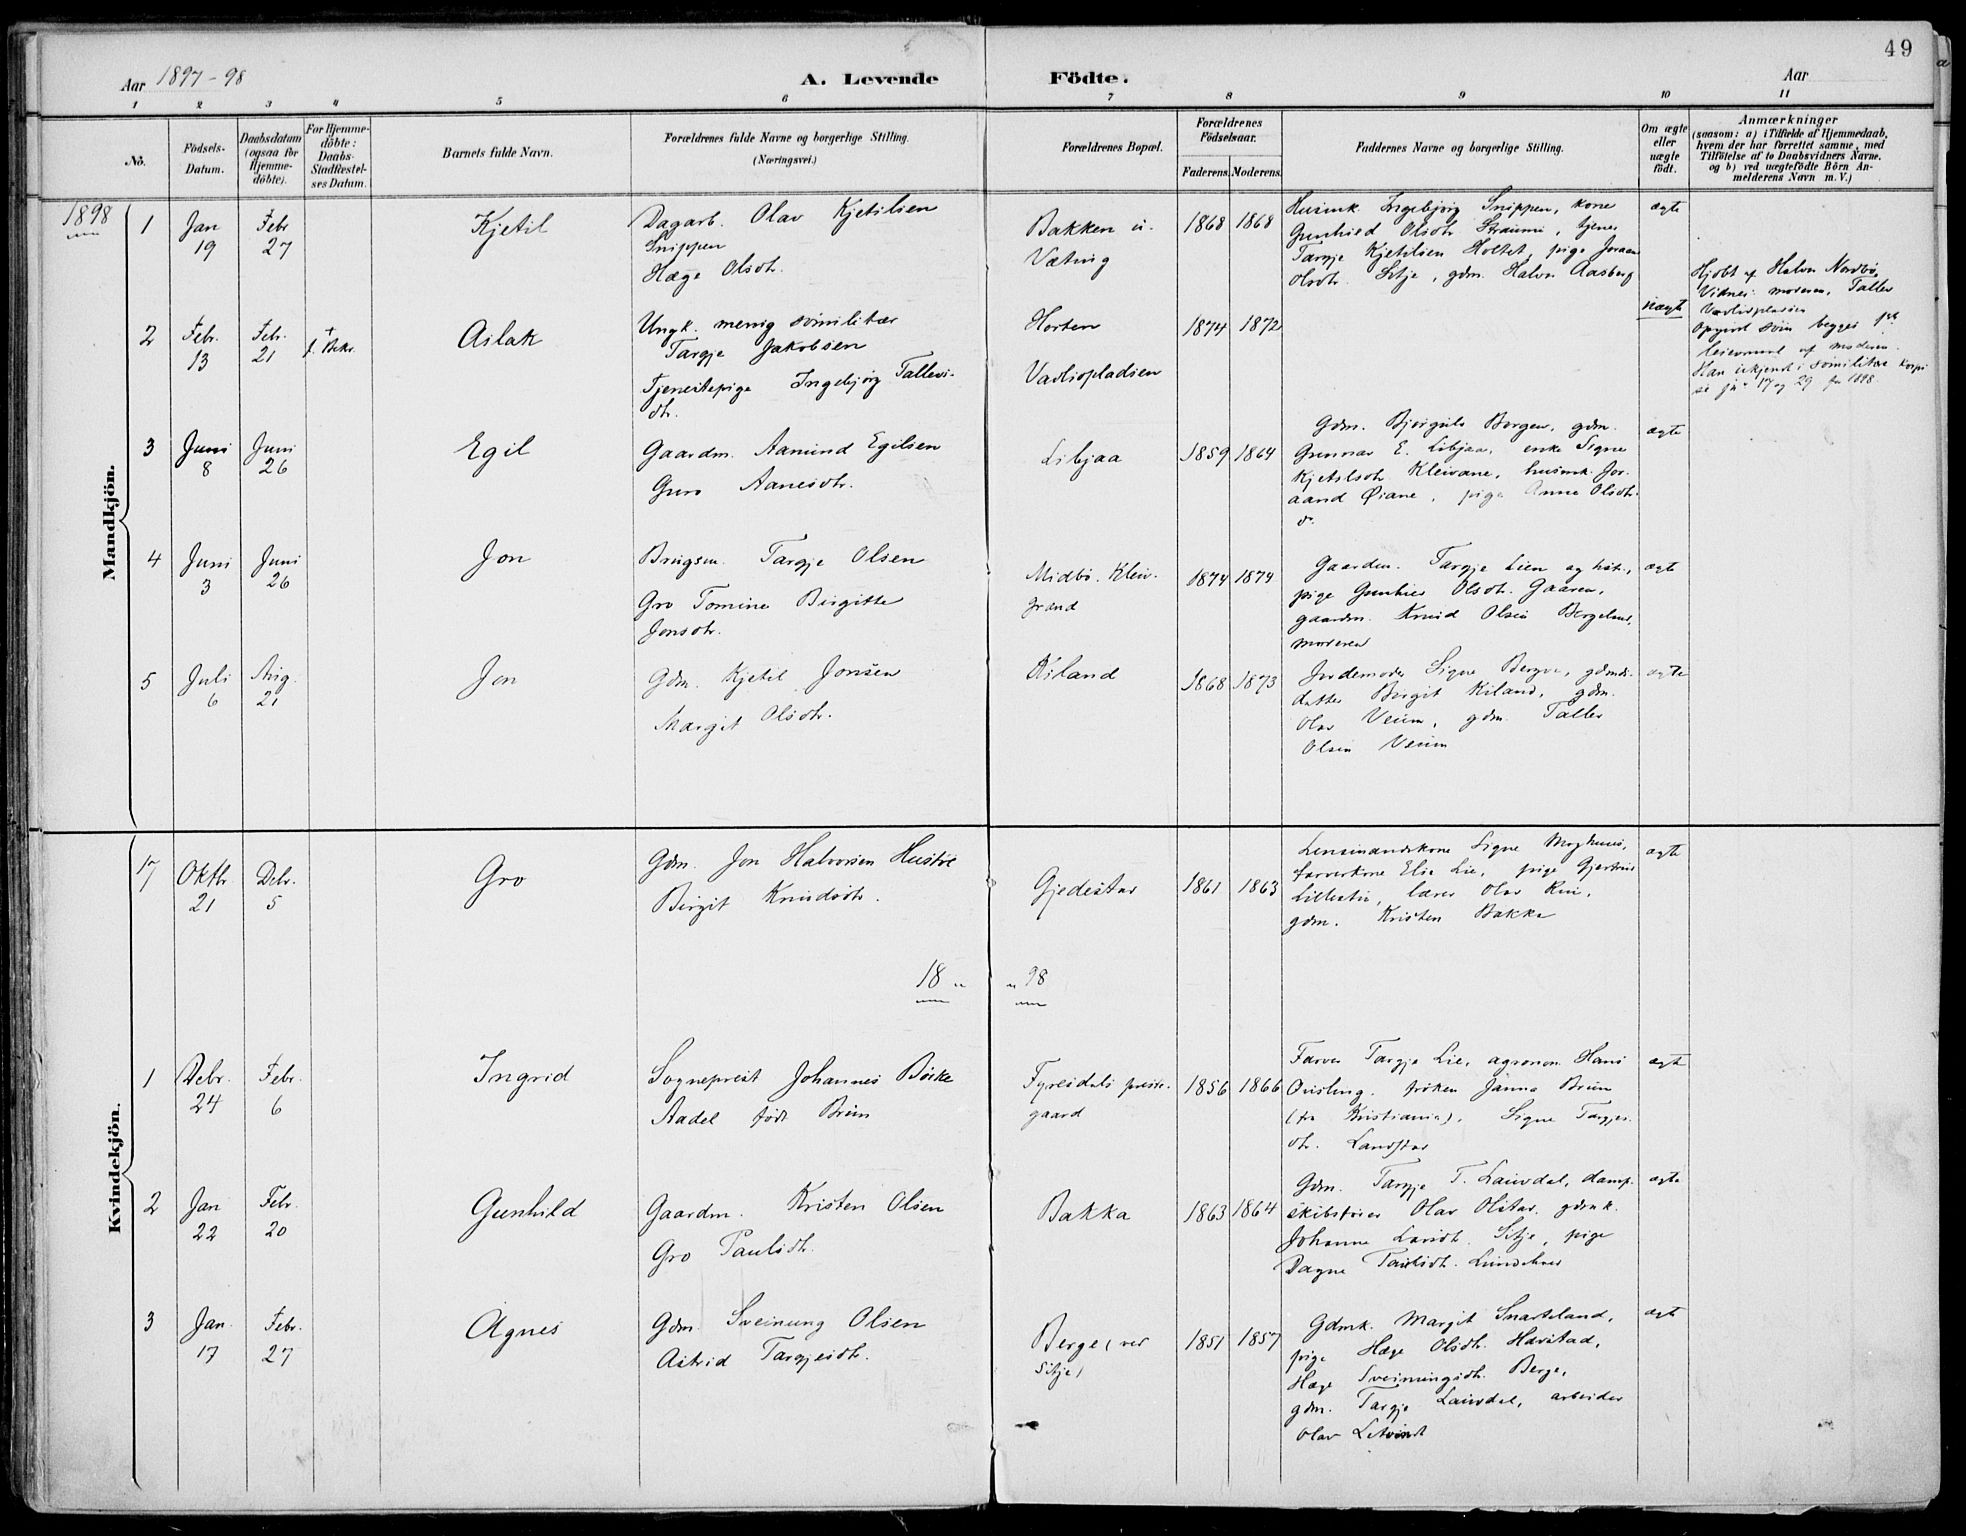 49
Aar 1897-98
A. Levende Födte.
Aar
1 2 3 4 5 6 7 8 9 10 11
No.
Födsels-Datum.
Daabsdatum (ogsaa for Hjemme-döbte).
For Hjemme-döbte: Daabs-Stadfæstel-ses Datum.
Barnets fulde Navn.
Forældrenes fulde Navne og borgerlige Stilling. (Næringsvei.)
Forældrenes Bopæl.
Forældrenes Födselsaar.
Faderens. Moderens.
Faddernes Navne og borgerlige Stilling.
Om ægte eller uægte födt.
Anmærkninger
(saasom: a) i Tilfælde af Hjemmedaab,
hvem der har forrettet samme, med
Tilföielse af to Daabsvidners Navne,
og b) ved uægtefödte Börn An-
melderens Navn m. V.)
Mandkjön.
1898
1
Jan 19
Febr 27
Kjetil
Dagarb. Olav Kjetilsen
Snippen
Hæge Olsdtr.
Bakken u.
Vætng
1868 1868
Husmk. Ingebjørg Snippen, kone
Gunhild Olsdtr. Straume, tjener
Targje Kjetilsen Holtet, pige Joraan
Olsdtr. Sitje, gdm. Halvor Aasberg
ægte
2
Febr. 13
Febr. 21
Aslak
Ungk. menig sömilitær
Targje Jakobsen
Tjenestepige Ingebjørg Tallevs-
dtr.
Horten
Vadlispladsen
1874 1872
uægte
Hjdbt af Halvor Nordbö,
Vidner: moderen, Tallev
Vadlispladsen
Opgivet som begges 1ste
leiermaal af moderen.
3
Juni 8
Juni 26
Egil
Gaardm. Aamund Egilsen
Guro Aanesdtr.
Libjaa
1859 1864
Gdm. Bjørgulv Borgen, gdm.
Gunnar E. Libjaa, enke Signe
Kjetilsdtr Kleivane, husmk. Jor-
aand Øiane, pige Anne Olsdtr.
do.
ægte
4
Juni 3
Juni 26
Jon
Brugsm. Targje Olsen
Gro Tomine Birgitte
Jonsdtr.
Midbö. Kleiv-
grænd
1874 1874
Gaardm. Targje Lien og hstr.,
pige Gunhild Olsdtr. Gaaren,
gaardm. Knud Olsen Bergeland,
moderen
ægte
5
Juli 6
Aug. 21
Jon
Gdm. Kjetil Jonsen
Margit Olsdtr.
Kiland
1868 1873
Jordemoder Signe Bergve, gdmds-
datter Borgit Kiland, gdm.
Olav Veum, gdm. Tallev
Olsen Veum
ægte
Kvindekjön.
17
Oktbr. 21
Debr. 5
Gro
Gdm. Jon Halvorsen Hustvet
Birgit Knudsdtr.
Gjedestad
1861 1863
Lensmandskone Signe Moghus,
farverkone Elsa Lie, pige Gjertrud
Lillestu, lærer Olav Rui,
gdm. Kristen Bakka
ægte
18 " " 98
1
Debr. 24
Febr. 6
Ingrid
Sogneprest Johannes Böske
Aadel född Brun
Fyresdals preste-
gaard
1856 1866
Farver Targje Lie, agronom Hans
Quisling, fröken Janna Brun
(fra Kristiania), Signe Targjes-
dtr. Landstad
ægte
2
Jan 22
Febr. 20
Gunhild
Gaardm. Kristen Olsen
Gro Paulsdtr.
Bakka
1863 1864
Gdm. Targje T. Lauvdal, damp-
skibsförer Olav Olstad, gdmk.
Johanne Larsdtr. Sitje, pige
Dagne Taulsdtr. Lundekvæ
ægte
3
Jan. 17
Febr. 27
Agnes
Gdm. Sveinung Olsen
Astrid Targjesdtr.
Berge (ved
Sitje)
1851 1857
Gdmk. Margit Snarteland,
pige Hæge Olsdtr. Havstad,
Hæge Sveinungsdtr. Berge,
gdm. Targje Lauvdal, arbeider
Olav
ægte